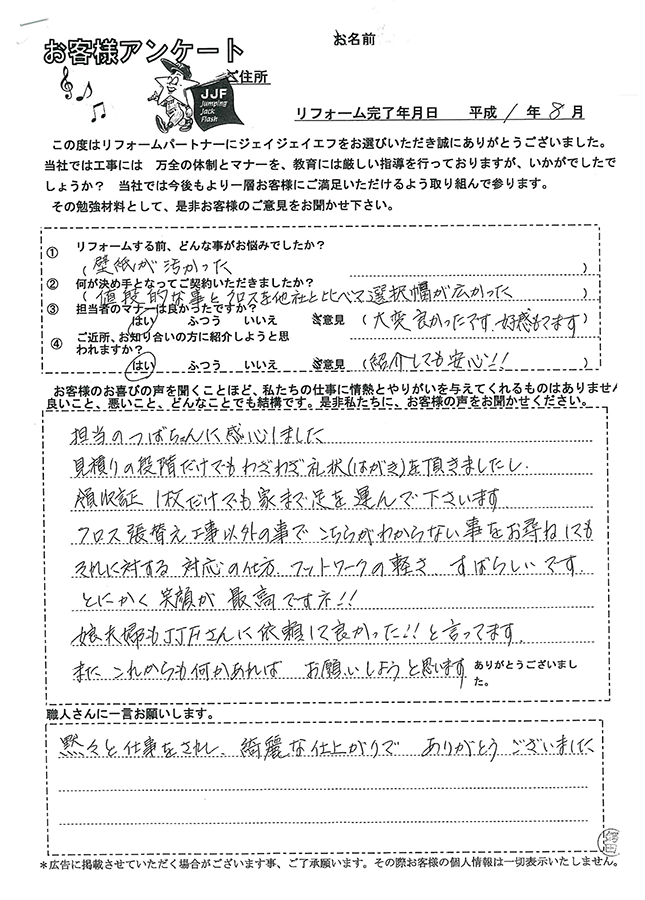 お名前
お客様アンケート
ご住所
JJF
Jumping
Jack
Flash
リフォーム完了年月日 平成 1 年 8 月
この度はリフォームパートナーにジェイジェイエフをお選びいただき誠にありがとうございました。
当社では工事には 万全の体制とマナーを、教育には厳しい指導を行っておりますが、いかがでしたで
しょうか? 当社では今後もより一層お客様にご満足いただけるよう取り組んで参ります。
その勉強材料として、是非お客様のご意見をお聞かせ下さい。
① リフォームする前、どんな事がお悩みでしたか?
(壁紙が汚かった )
② 何が決め手となってご契約いただきましたか?
(値段的な事とクロスを他社と比べて選択幅が広かった )
③ 担当者のマナーは良かったですか?
はい ふつう いいえ ご意見 (大変良かったです、好感もてます)
④ ご近所、お知り合いの方に紹介しようと思
われますか?
はい ふつう いいえ ご意見 (紹介しても安心!! )
お客様のお喜びの声を聞くことほど、私たちの仕事に情熱とやりがいを与えてくれるものはありませ
良いこと、悪いこと、どんなことでも結構です。是非私たちに、お客様の声をお聞かせください。
担当のつばちゃんに感心しました
見積りの段階だけでもわざわざ礼状(はがき)を頂きましたし、
領収証 1枚だけでも家まで足を運んで下さいます
クロス張替え工事以外の事で こちらがわからない事をお尋ねしても
それに対する 対応の仕方、フットワークの軽さ すばらしいです。
とにかく 笑顔が 最高ですネ!!
娘夫婦もJJFさんに依頼して良かった!!と言ってます。
また これからも何かあれば お願いしようと思います ありがとうございまし
た。
職人さんに一言お願いします。
黙々と仕事をされ、綺麗な仕上がりで ありがとう ございました
*広告に掲載させていただく場合がございます事、ご了承願います。その際お客様の個人情報は一切表示いたしません。